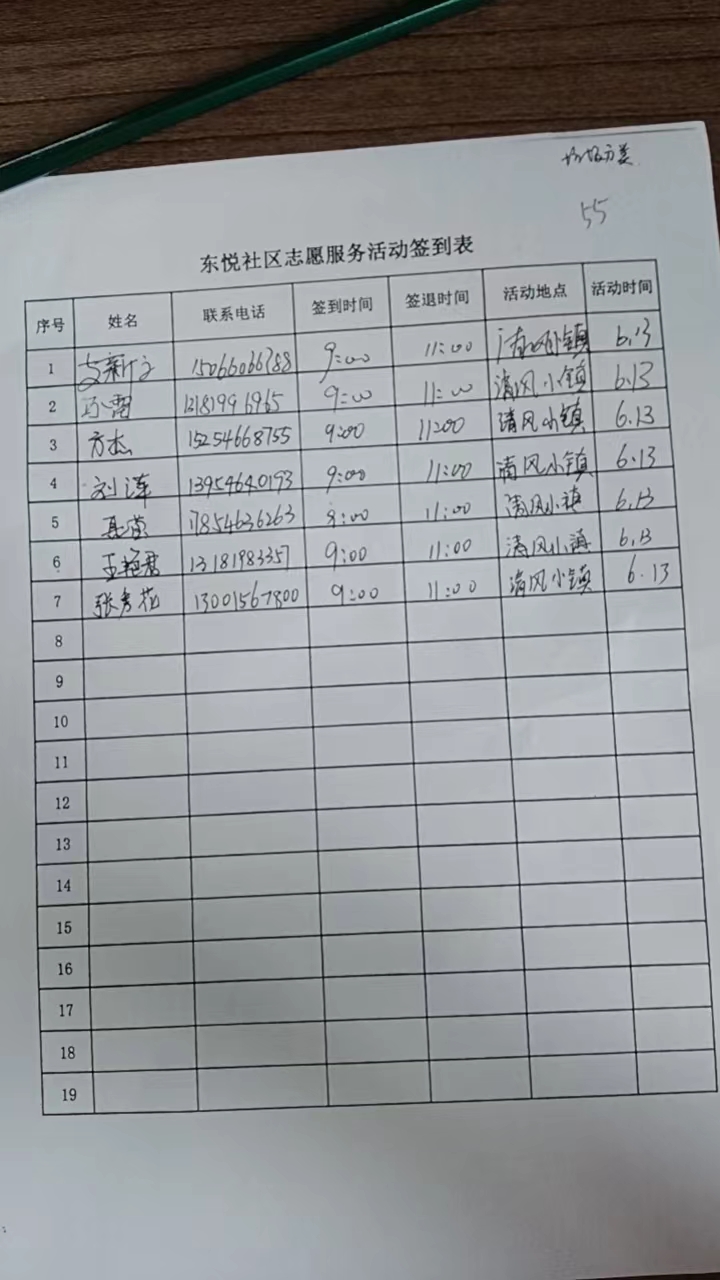 垃圾分类
55
东悦社区志愿服务活动签到表
序号 姓名 联系电话 签到时间 签退时间 活动地点 活动时间
1 15066066788 9:00 11:00 镇 6.13
2 9:00 11:00 清风小镇 6.13
3 方杰 15254668755 9:00 11:00 清风小镇 6.13
4 刘 13954640193 9:00 11:00 清风小镇 6.13
5 17854636263 9:00 11:00 清风小镇 6.13
6 王艳君 13181983357 9:00 11:00 清风小镇 6.13
7 张秀花 13001567800 9:00 11:00 清风小镇 6.13
8
9
10
11
12
13
14
15
16
17
18
19